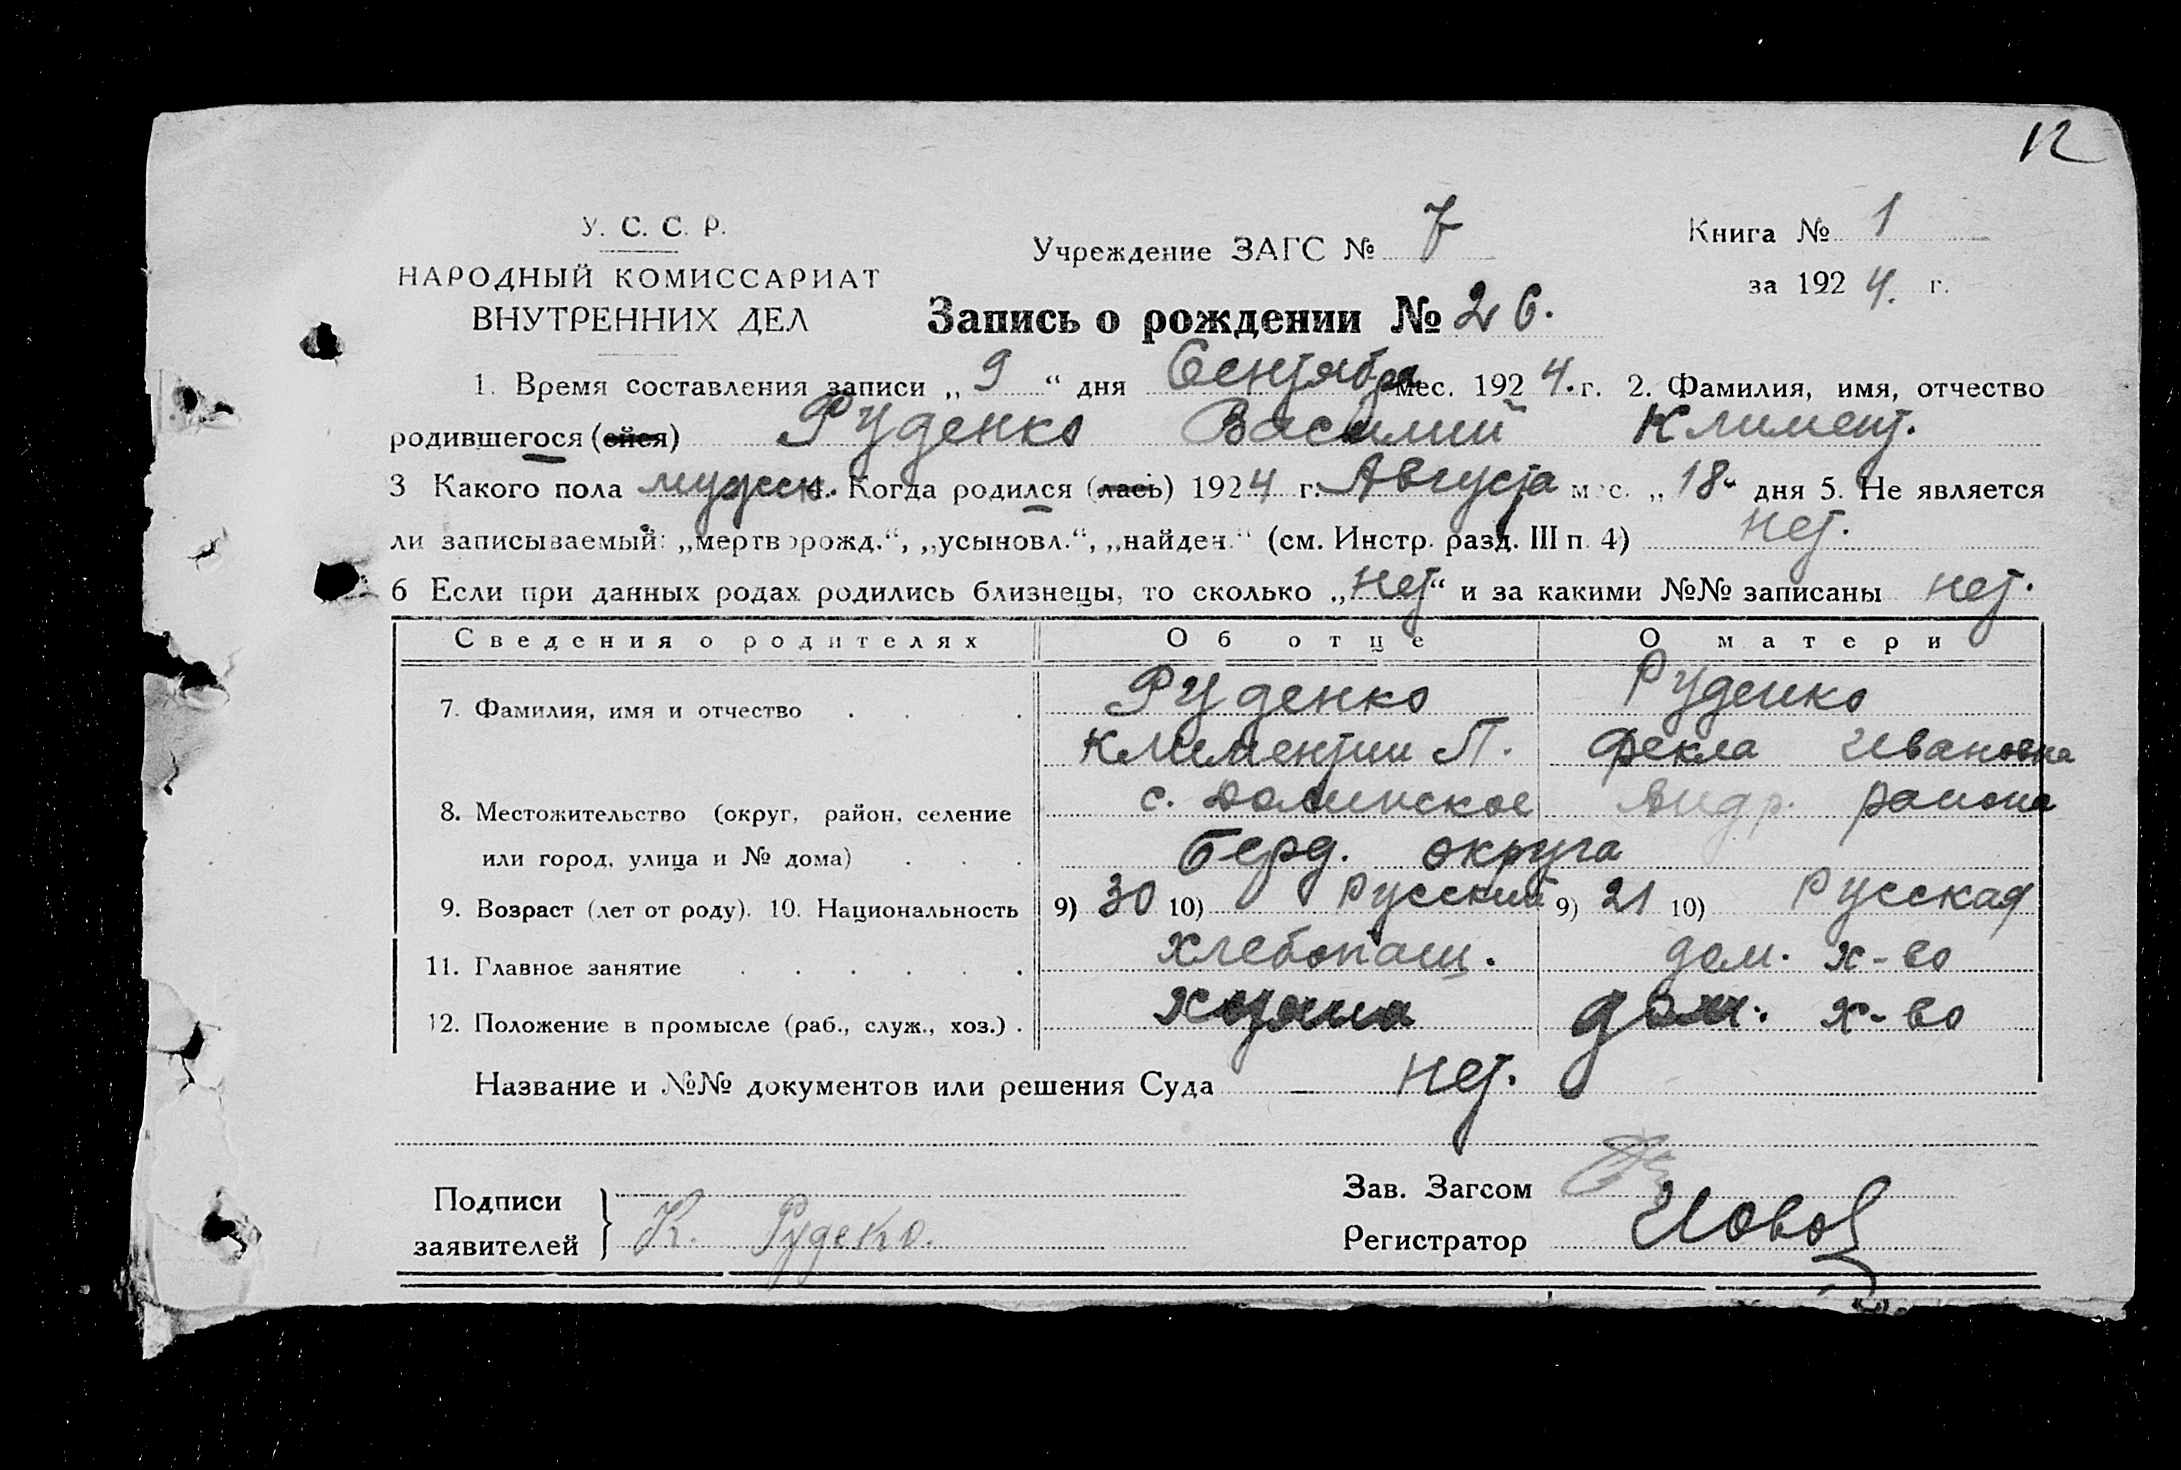 12
У. С. С. Р.
НАРОДНЫЙ КОМИССАРИАТ
ВНУТРЕННИХ ДЕЛ
Учреждение ЗАГС № 7
Книга № 1
за 1924. г.
Запись о рождении № 26.
1. Время составления записи „ 9 “ дня Сентября мес. 1924. г. 2. Фамилия, имя, отчество
родившегося (ейся) Руденко Василий Климент.
3 Какого пола мужск. 4. Когда родился (лась) 1924 г. Августа мес. „ 18- дня 5. Не является
ли записываемый: „мертворожд.“, „усыновл.“, „найден.“ (см. Инстр. разд. III п. 4) нет.
6 Если при данных родах родились близнецы, то сколько „нет“ и за какими №№ записаны нет.
Сведения о родителях Об отце О матери
7. Фамилия, имя и отчество . . . . Руденко Руденко
Климентии П. Фекла Ивановна
8. Местожительство (округ, район, селение с. Долинское Андр. района
или город, улица и № дома) . . . Берд. округа
9. Возраст (лет от роду). 10. Национальность 9) 30 10) Русский 9) 21 10) Русская
11. Главное занятие . . . . . . Хлебопаш. дом. х-во
12. Положение в промысле (раб., служ., хоз.) . дом. х-во
Название и №№ документов или решения Суда нет.
Подписи
заявителей } К. Рудеко.
Зав. Загсом
Регистратор